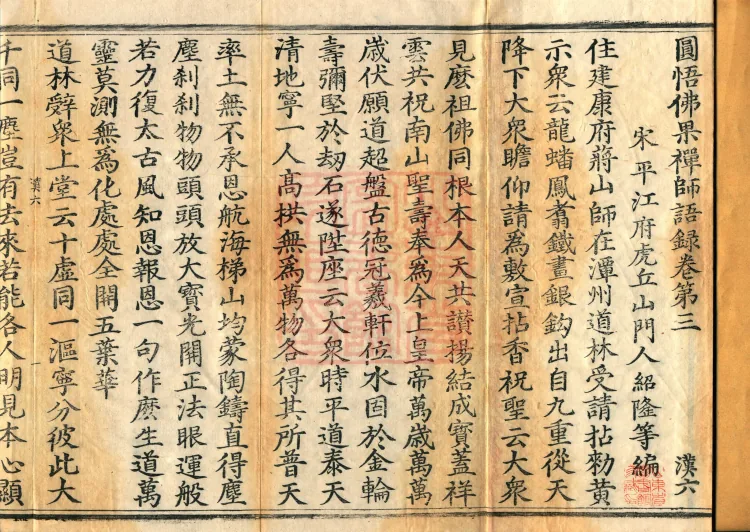 圓悟佛果禪師語録卷第三 漠六
宋平江府虎丘山門人紹隆等編
住建康府蔣山師在潭州道林受請拈勑黄
示衆云龍蟠鳳翥鐵畫銀鈎出自九重從天
降下大衆瞻仰請為敷宣拈香祝聖云大衆
見麽祖佛同根本人天共讃揚結成寳蓋祥
雲共祝南山聖壽奉爲今上皇帝萬歳萬萬
歳伏願道超盤古德冠羲軒位永固於金輪
壽彌堅於劫石遂陞座云大衆時平道泰天
清地寧一人高拱無爲萬物各得其所普天
率土無不承恩航海梯山均蒙陶鑄直得塵
塵刹刹物物頭頭放大寳光開正法眼運般
若力復太古風知恩報恩一句作麽生道萬
靈莫測無為化處處全開五葉華
道林辤衆上堂云十虛同一漚寧分彼此大
漠六
千同一塵豈有去來若能各人明見本心顯